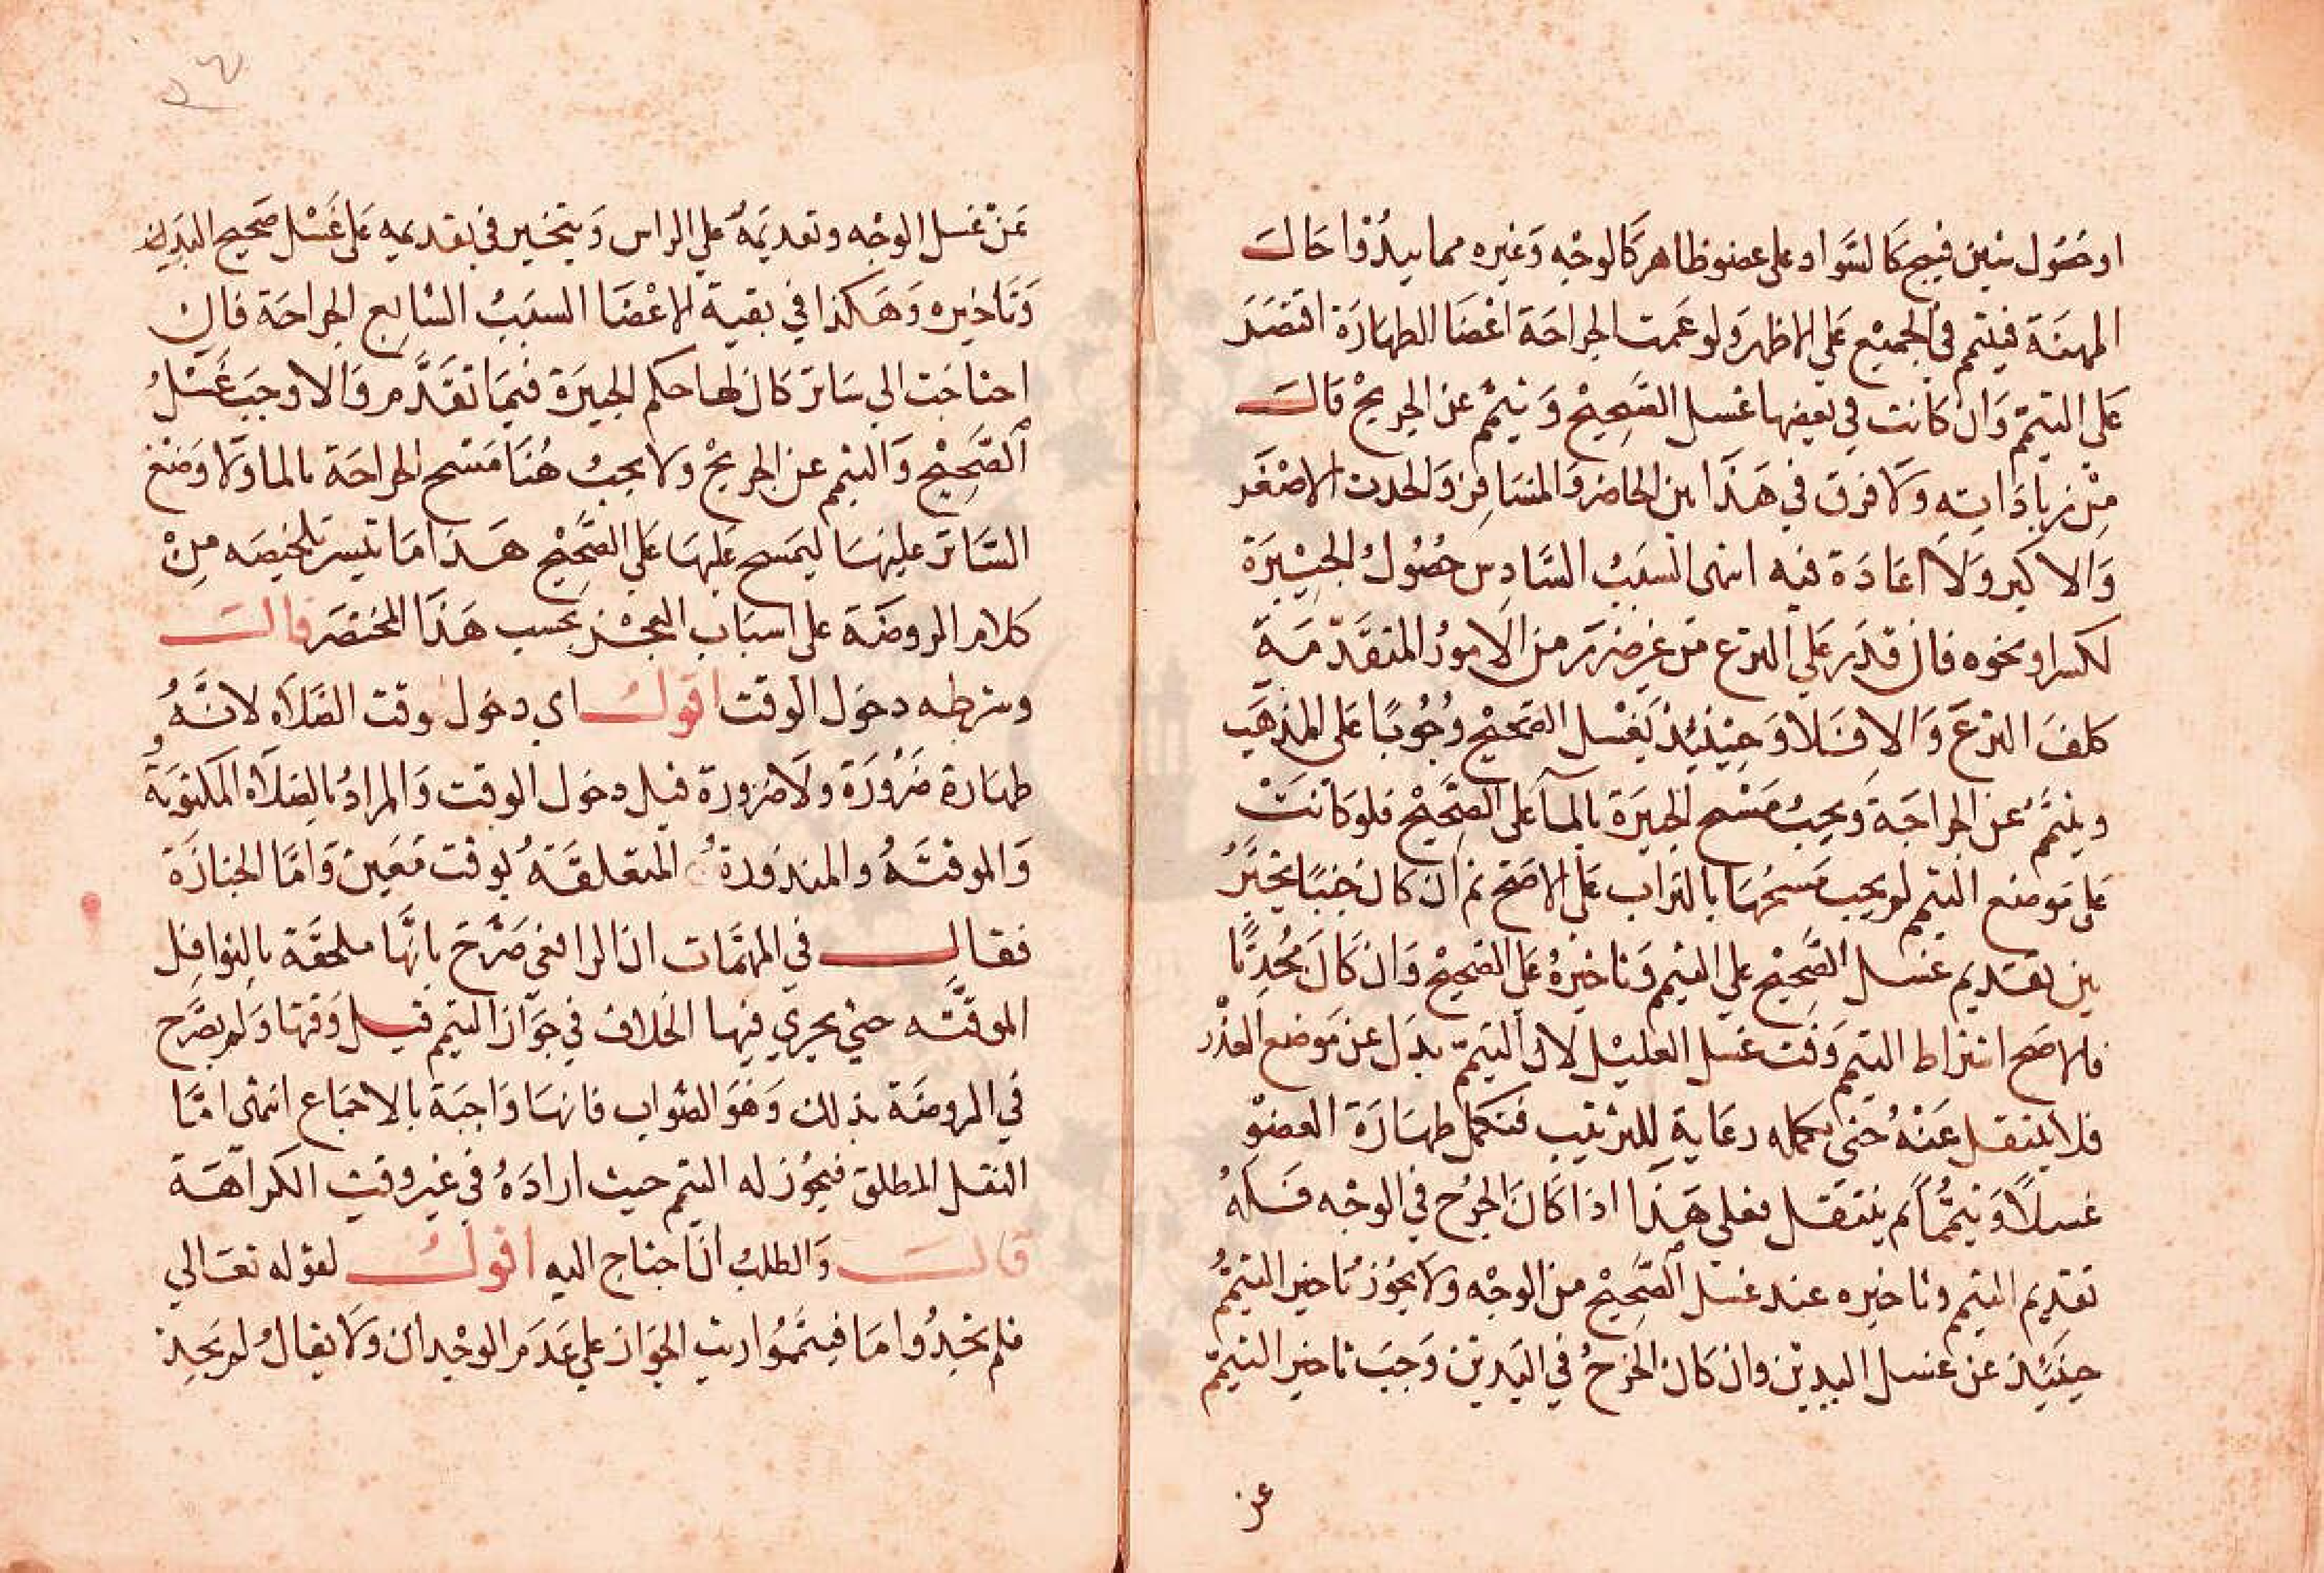 او حصُول شين قبيح كالسَّواد على عضو ظاهر كالوجه وَغيره مما يبدُوا حَال
المهنَة فيتيمم في الجميْع عَلي الاظهر وَلو عَمت الجراحَة اعْضَا الطهَارَة اقتصَرَ
عَلى التيمّم وَان كانت في بعضها غسل الصَّحِيْح وَ يتيمّم عن الجريحْ قال
مِنْ زيادَاتِه وَلا فرق في هَذَا بين الحاضر وَالمسَافِر وَالحدث الاصْغَر
وَالاكبر وَلَا اعَادَة فيه انتهى السَّبَبُ السَّادِس حصُولُ الجبِيْرَة
لكسر او نحوه فان قدَر عَلي النزع من غير ضرر من الامورُ المتقَدّمَة
كلفَ النزعَ وَالا فَلا وَحِيْنئِذ يَغْسل الصَّحيْح وُجُوبًا عَلى المذهَب
ويتيَمَّمُ عن الجراحَة وَيجبُ مَسْح الجبيَرَة بالمآ عَلى الصَّحِيْح فلو كانتْ
عَلى مَوضع التيمم لم يجب مَسحُهَا بالتراب عَلي الاصَح ثم ان كان جُنبًا يخيَّرُ
بين تقديم غسَل الصَّحِيْح علي التيمم وَتاخيْرهُ عَلَي الصَّحِيْح وَان كَانَ مُحْدِثًا
فالاصَح اشتراط التيمم وَقت غسَل العليْل لان التيمّم بدَل عن مَوضع العذْر
فلا ينتقل عَنْهُ حَتي يكمله رعَاية للترتيب فتكمل طهَارَة العضوْ
غسلًا وَتيَمُّمًا ثم ينتقل فعلى هَذَا اذا كَانَ الجرْح في الوجْه فَلهُ
تقديم التيمم وتاخيره عند غسل الصَّحِيْح من الوجْه ولا يجُوز تاخير التيمّم
حِينَئِذ عَن غسل اليدين وان كان الجرْحُ في اليَدين وَجبَ تاخير التيمّم
عن
عَنْ غسل الوجْه وتقديَمهُ عَلي الراس وَيتخيَر في تقديمه عَلى غَسْل صَحيح اليَدين
وَتَاخيره وَهَكذا في بقية الاعْضَا السبَبُ السَّابع الجراحَة فان
احتاجَت الي سَاتر كانَ لها حكم الجبيرَة فيمَا تقدَّم وَالا وجبَ غَسْلُ
الصَّحِيْح وَالتيمم عن الجريحْ ولا يجبُ هُنَا مَسْح الجراحَة بالما وَلا وَضعْ
السَّاتر عليهَا ليمَسح عَليهَا عَلي الصَّحِيْح هَذا مَا تيسر تلخيصَه مِنْ
كلام الروضَة على اسبَاب العجْز بحسب هَذَا المختصَر قال
وشرطه دخَول الوَقت اقولُ اي دخول وقت الصَّلاَة لانَّهُ
طهَارة ضَرُورَة وَلا ضرورة قبل دخَول الوقت وَالمرادُ بالصَلاَة المكتوبَة
وَالموقتَهُ والمنذورة المتعَلقَةُ بوقت مَعَين وَامَّا الجنازَة
فقال في المهمَّات ان الرافعي صَرَّحَ بانَّها ملحقَة بالنوافِل
الموقتَّه حتيْ يجري فيها الخلاف في جَوَاز التيمم قبل وَقتهَا وَلم يصَرَّح
في الروضَة بذلك وَهوَ الصَّواب فانهَا وَاجبَة بالاجمَاع انتهي امَّا
النفل المطلق فيَجُوز له التيمم حيث ارادَهُ في غير وقت الكرَاهَة
قال وَالطلبُ ان احتاج اليه اقولُ لقوله تعَالي
فلم تجدُوا مَا فيتمَّمُوا رتب الجَوَاز علي عَدَم الوجْدان وَلا يقالُ لم يَجدْ